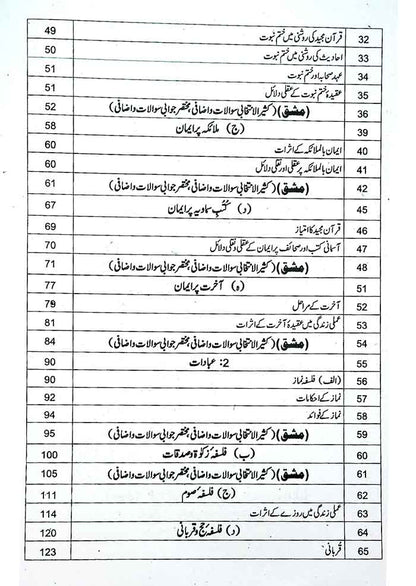 32 قرآن مجید کی روشنی میں ختم نبوت 49
33 احادیث کی روشنی میں ختم نبوت 50
34 عہد صحابہ اور ختم نبوت 51
35 عقیدۂ ختم نبوت کے عقلی دلائل 51
36 (مشق) (کثیر الانتخابی سوالات واضافی، مختصر جوابی سوالات واضافی) 52
39 (ج) ملائکہ پر ایمان 58
40 ایمان بالملائکہ کے اثرات 60
41 ایمان بالملائکہ پر عقلی اور نقلی دلائل 60
42 (مشق) (کثیر الانتخابی سوالات واضافی، مختصر جوابی سوالات واضافی) 61
45 (د) کُتبِ سماویہ پر ایمان 67
46 قرآن مجید کا امتیاز 69
47 آسمانی کتب اور صحائف پر ایمان کے عقلی ونقلی دلائل 70
48 (مشق) (کثیر الانتخابی سوالات واضافی، مختصر جوابی سوالات واضافی) 71
51 (ہ) آخرت پر ایمان 77
52 آخرت کے مراحل 79
53 عملی زندگی میں عقیدۂ آخرت کے اثرات 81
54 (مشق) (کثیر الانتخابی سوالات واضافی، مختصر جوابی سوالات واضافی) 84
55 2: عبادات 90
56 (الف) فلسفۂ نماز 90
57 نماز کے احکامات 92
58 نماز کے فوائد 94
59 (مشق) (کثیر الانتخابی سوالات واضافی، مختصر جوابی سوالات واضافی) 95
60 (ب) فلسفۂ زکوٰۃ وصدقات 100
61 (مشق) (کثیر الانتخابی سوالات واضافی، مختصر جوابی سوالات واضافی) 105
62 (ج) فلسفۂ صوم 111
63 عملی زندگی میں روزے کے اثرات 114
64 (د) فلسفۂ حج وقربانی 120
65 قربانی 123